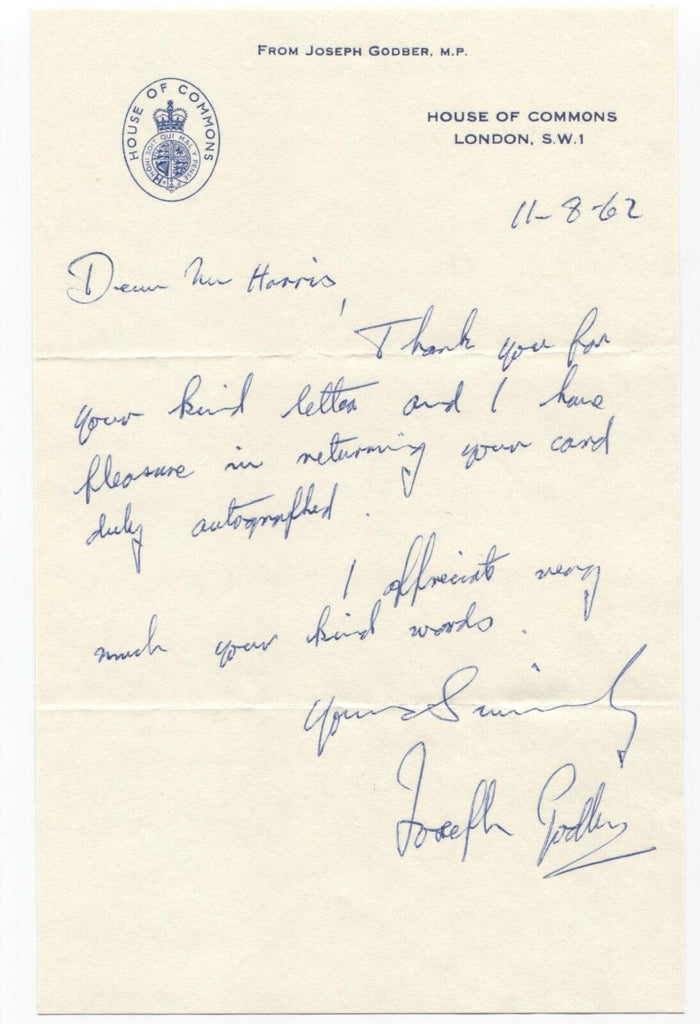 FROM JOSEPH GODBER, M.P.
HOUSE OF COMMONS
HONI SOIT QUI MAL Y PENSE
HOUSE OF COMMONS
LONDON, S.W.1
11-8-62
Dear Mr Harris,
Thank you for
your kind letter and I have
pleasure in returning your card
duly autographed.
I appreciate very
much your kind words.
Yours Sincerely
Joseph Godber